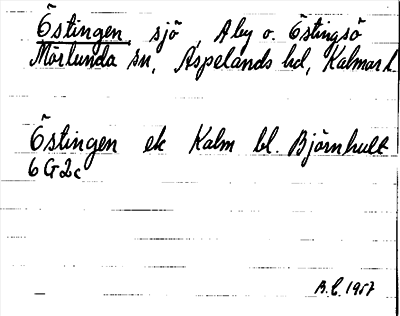 Östingen, sjö, Åby o. Östingsö
Mörlunda sn, Aspelands hd, Kalmar l.
Östingen ek Kalm bl. Björnhult
6G2c
B.C. 1957